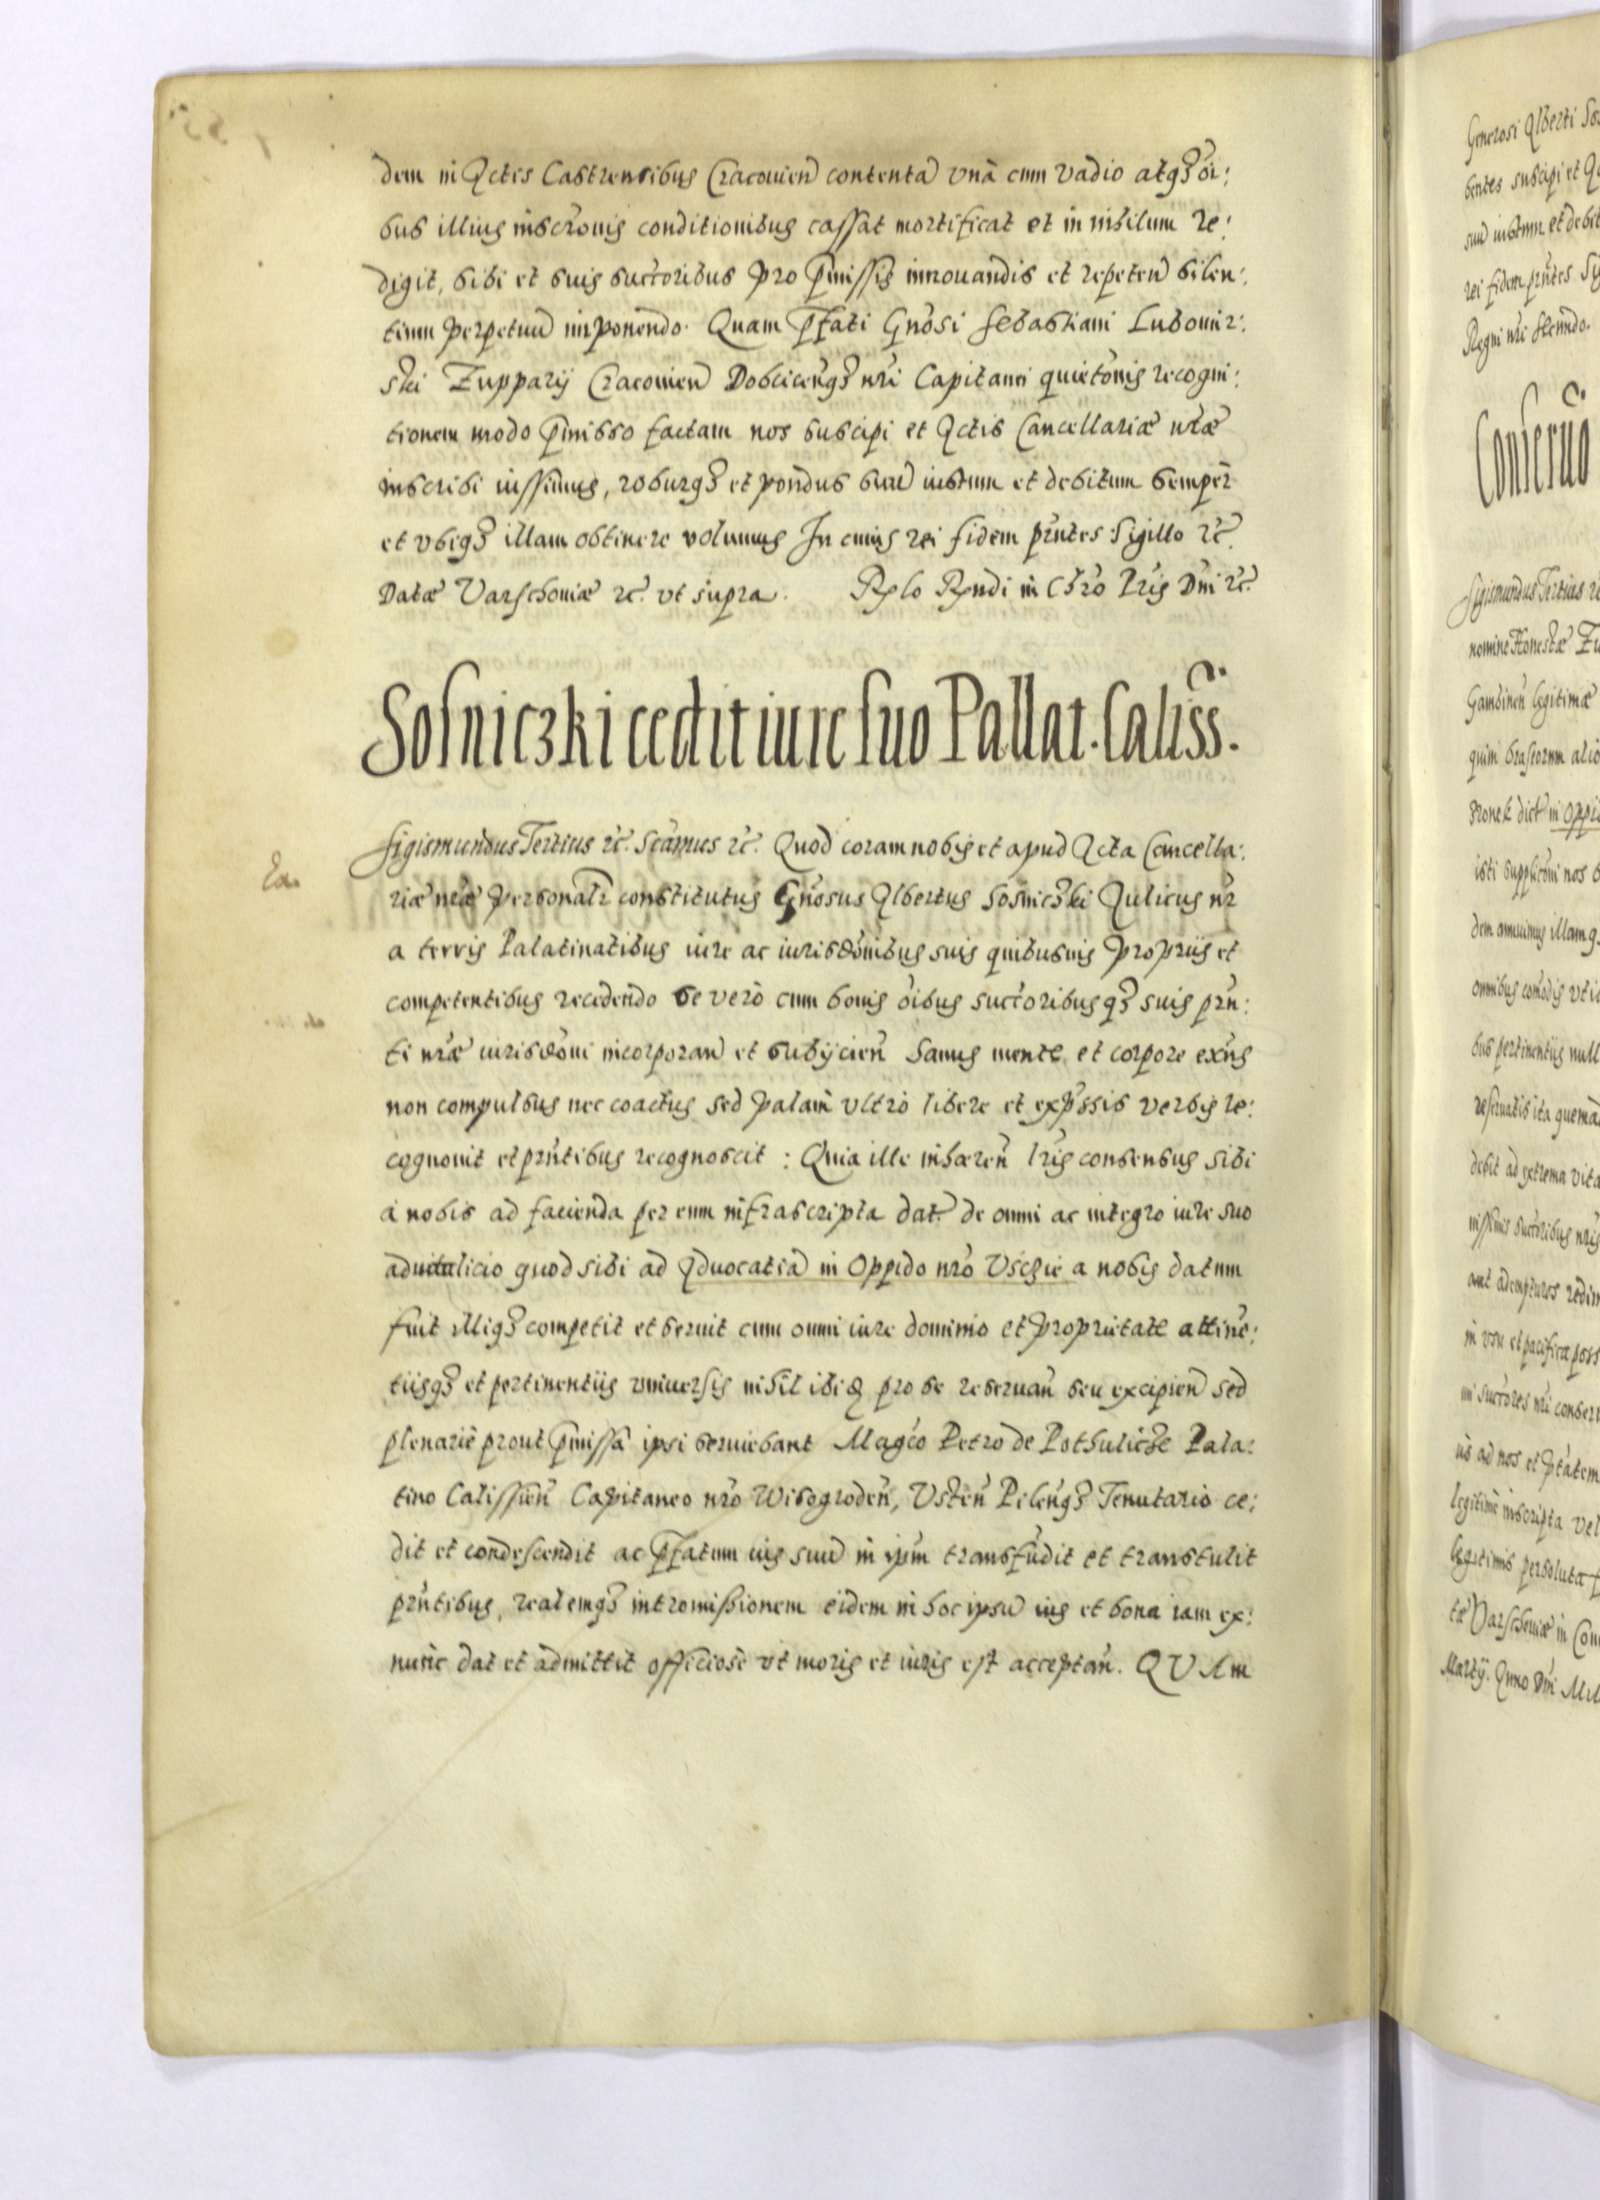 dem in Actis Castrensibus Cracouien contenta vnà cum vadio atq3 oi:
bus illius inscronis conditionibus cassat mortificat et in nihilum re:
digit, sibi et suis succoribus pro pmissis innouandis et repeten silen:
tium perpetuu imponendo. Quam pfati Gnosi Sebastiani Lubomir:
ski Zupparij Cracouien Dobcicenq3 nri Capitanei quietonis recogni:
tionem modo pmisso factam nos suscipi et Actis Cancellariæ nræ
inscribi iussimus, roburq3 et pondus suu iustum et debitum semper
et vbiq3 illam obtinere volumus In cuius rei fidem prntes Sigillo rc.
Datæ Varschouiæ rc. vt supra. Rlo Rndi in Chro Pris Dni rc.
Sosniczki cedit iure suo Pallat. Caliss.
Ea.
Sigismundus Tertius rc. Scamus rc. Quod coram nobis et apud Acta Cancella:
riæ nræ personalr constitutus Gnosus Albertus Sosniczki Aulicus nr
a terris Palatinatibus iure ac iurisdonibus suis quibusuis proprijs et
competentibus recedendo se verò cum bonis oibus succoribusq3 suis prn:
ti nræ iurisdoni incorporan et subijcien Sanus mente et corpore exns
non compulsus nec coactus sed palam vltrò libere et expssis verbis re:
cognouit et prntibus recognoscit : Quia ille inhæren lris consensus sibi
à nobis ad facienda per eum infrascripta dat. de omni ac integro iure suo
aduitalicio quod sibi ad Aduocatia in Oppido nro Vscie a nobis datum
fuit illiq3 competit et seruit cum omni iure dominio et proprietate attine:
tiisq3 et pertinentiis vniuersis nihil ibid pro se reseruan seu excipien sed
plenariè prout pmissa ipsi seruiebant Magco Petro de Pothulicze Pala:
tino Calissien Capitaneo nro Wisogroden, Vsten Pilenq3 Tenutario ce:
dit et condescendit ac pfatum ius suu in ipm transfudit et transtulit
prntibus, realemq3 intromissionem eidem in hoc ipsu ius et bona iam ex:
nunc dat et admittit officiosè vt moris et iuris est acceptan. QVAm
Generosi Alberti
bentes suscipi et
suu iustum et debit
rei fidem prntes
Regni nri
Conseruo
Sigismundus Tertius
nomine Honestæ
legitimæ
in Oppid
isti nos
dem annuimus illamq3
omnibus
bus pertinentijs null
reseruatis ita
debit ad extrema vita
succoribus nris
in vsu et pacifica poss
ni succores nri
us ad nos et
legitimè inscripta vel
legitimis persoluta
tæ Varschouiæ in
Martij. Anno Dni